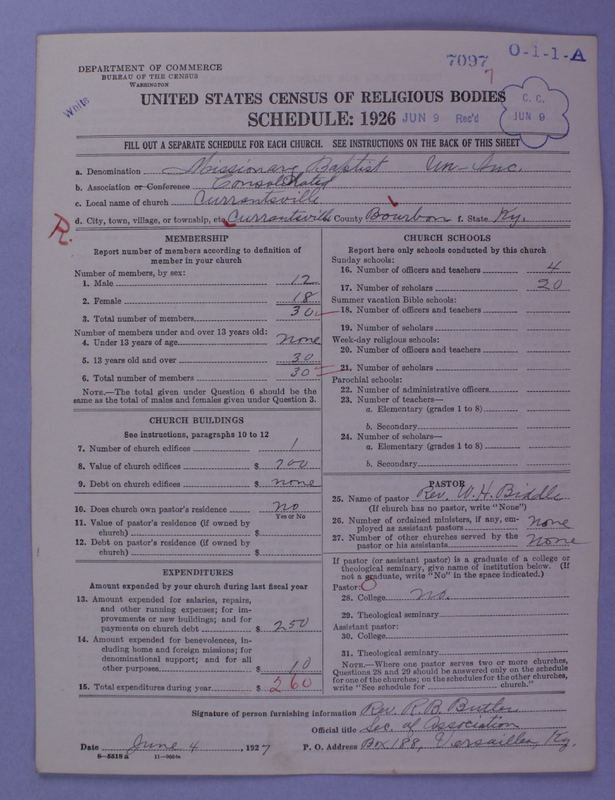 DEPARTMENT OF COMMERCE
BUREAU OF THE CENSUS
WASHINGTON
7097
7
O-1-1-A
White
UNITED STATES CENSUS OF RELIGIOUS BODIES
SCHEDULE: 1926
JUN 9 Rec'd
C. C.
JUN 9
FILL OUT A SEPARATE SCHEDULE FOR EACH CHURCH. SEE INSTRUCTIONS ON THE BACK OF THIS SHEET
a. Denomination Missionary Baptist Un-Inc.
b. Association or Conference Consolidated
c. Local name of church Currantsville
d. City, town, village, or township, etc. Currantsville County Bourbon f. State Ky.
R.
MEMBERSHIP
Report number of members according to definition of
member in your church
Number of members, by sex:
1. Male 12
2. Female 18
3. Total number of members 30
Number of members under and over 13 years old:
4. Under 13 years of age none
5. 13 years old and over 30
6. Total number of members 30
NOTE.—The total given under Question 6 should be the
same as the total of males and females given under Question 3.
CHURCH BUILDINGS
See instructions, paragraphs 10 to 12
7. Number of church edifices 1
8. Value of church edifices $ 700
9. Debt on church edifices $ none
10. Does church own pastor's residence? no
Yes or No
11. Value of pastor's residence (if owned by
church) $
12. Debt on pastor's residence (if owned by
church) $
EXPENDITURES
Amount expended by your church during last fiscal year
13. Amount expended for salaries, repairs,
and other running expenses; for im-
provements or new buildings; and for
payments on church debt $ 250
14. Amount expended for benevolences, in-
cluding home and foreign missions; for
denominational support; and for all
other purposes 10
15. Total expenditures during year $ 260
CHURCH SCHOOLS
Report here only schools conducted by this church
Sunday schools:
16. Number of officers and teachers 4
17. Number of scholars 20
Summer vacation Bible schools:
18. Number of officers and teachers
19. Number of scholars
Week-day religious schools:
20. Number of officers and teachers
21. Number of scholars
Parochial schools:
22. Number of administrative officers
23. Number of teachers—
a. Elementary (grades 1 to 8)
b. Secondary
24. Number of scholars—
a. Elementary (grades 1 to 8)
b. Secondary
PASTOR
25. Name of pastor Rev. W. H. Biddle
(If church has no pastor, write "None")
26. Number of ordained ministers, if any, em-
ployed as assistant pastors none
27. Number of other churches served by the
pastor or his assistants None
If pastor (or assistant pastor) is a graduate of a college or
theological seminary, give name of institution below. (If
not a graduate, write "No" in the space indicated.)
Pastor: O
28. College No.
29. Theological seminary
Assistant pastor:
30. College
31. Theological seminary
NOTE.—Where one pastor serves two or more churches,
Questions 28 and 29 should be answered only on the schedule
for one of the churches; on the schedules for the other churches,
write "See schedule for church."
Signature of person furnishing information Rev. R. B. Butler
Official title Sec. of Association
Date June 4, 1927 P. O. Address Box 188, Versailles, Ky.
8-5518a 11-9604a